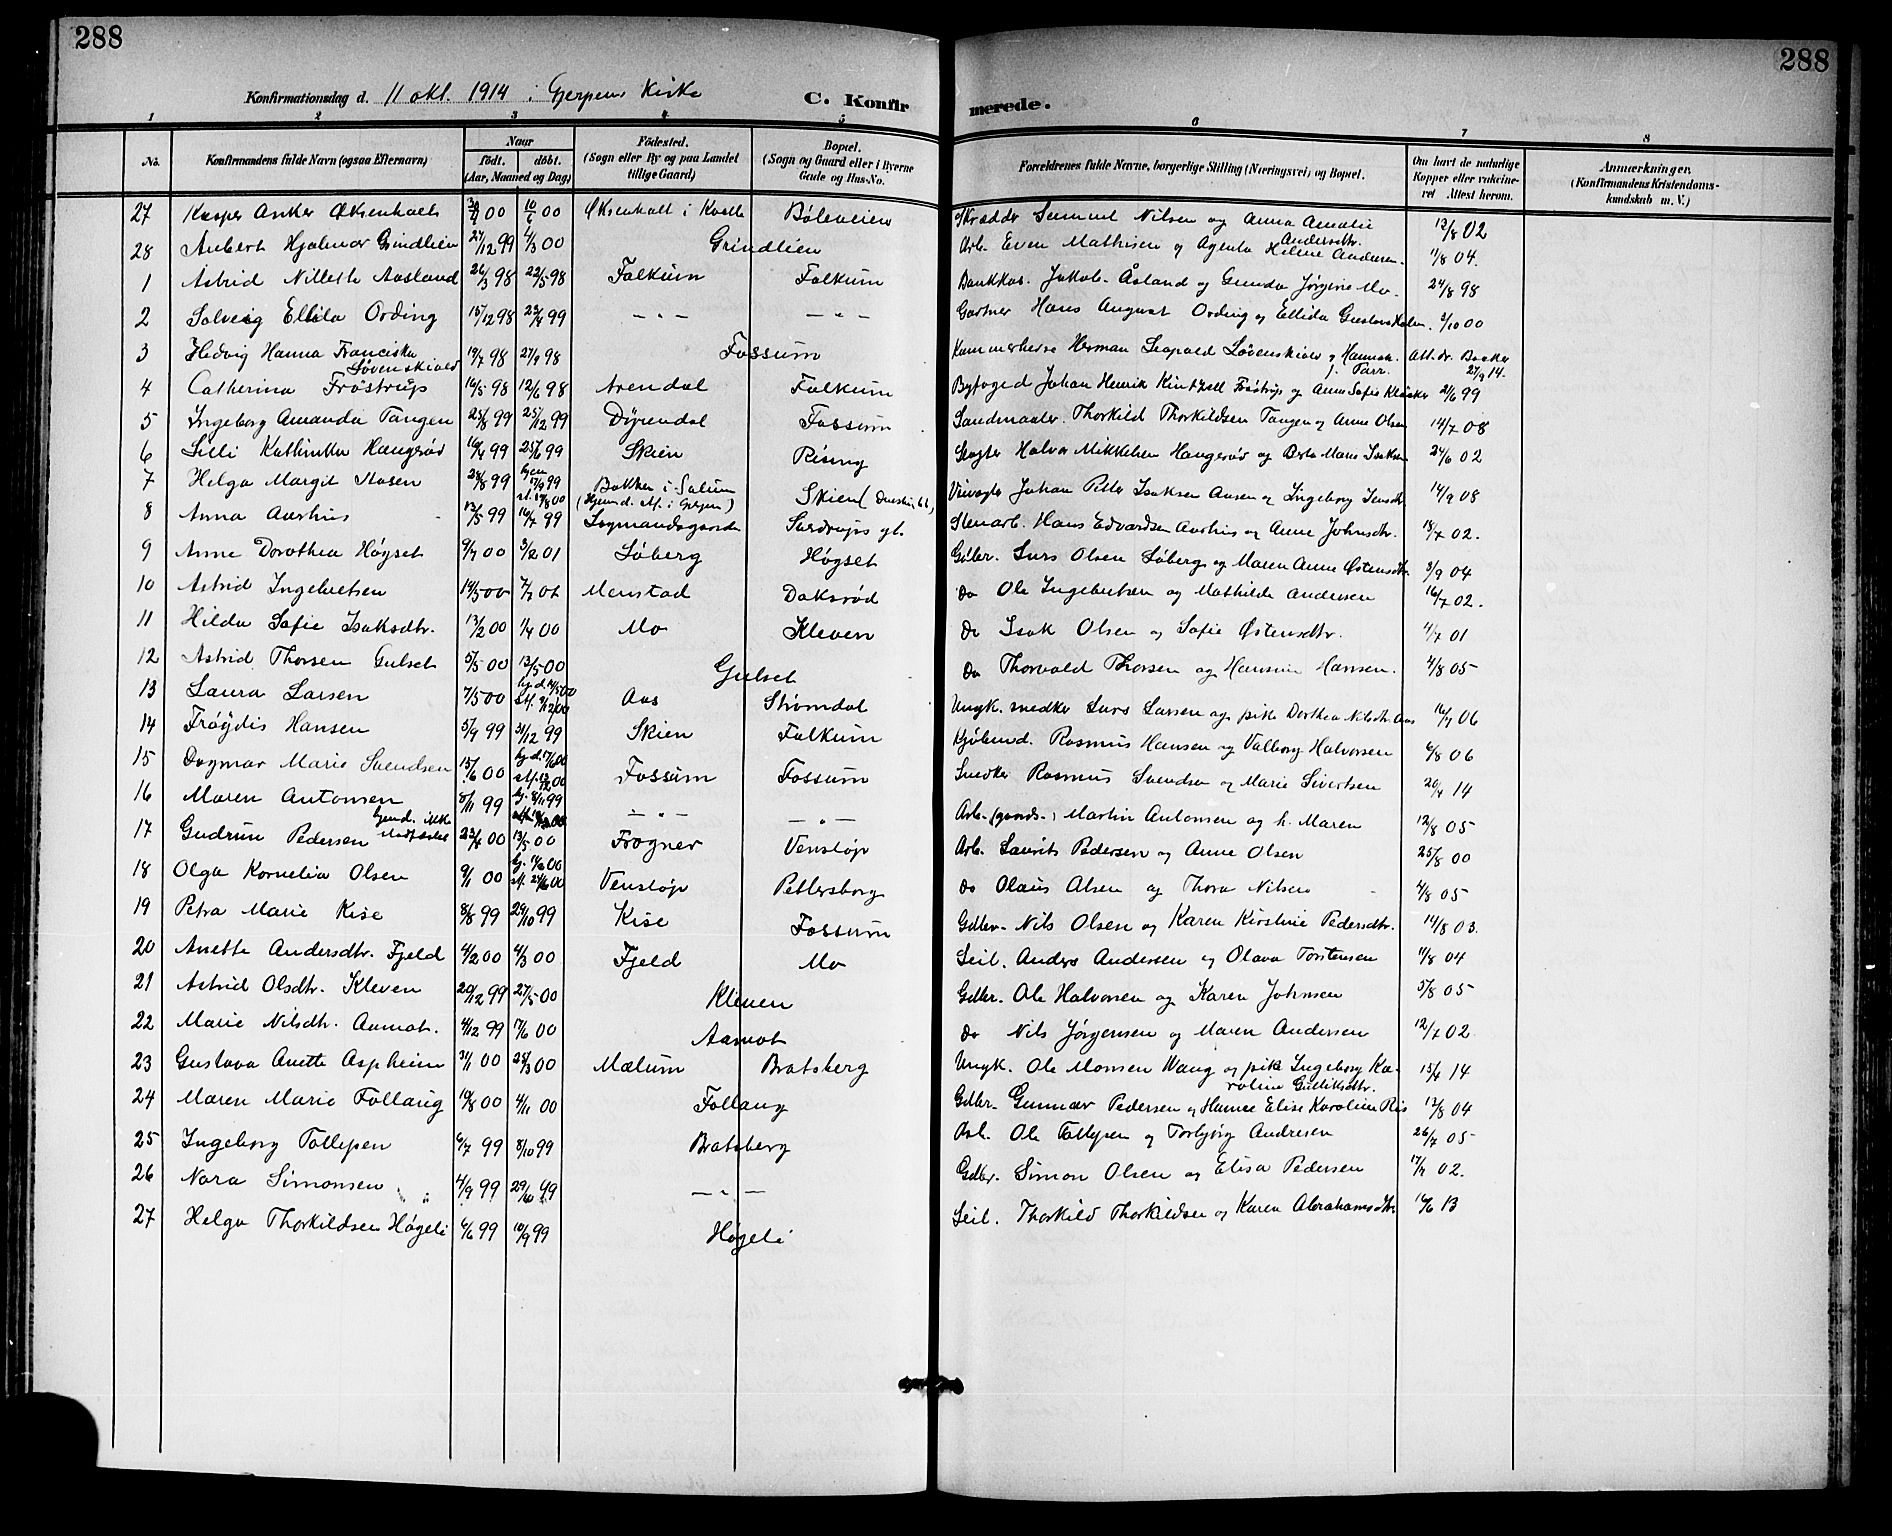 288
288
Konfirmationsdag d. 11 okt. 1914 i Gjerpens Kirke C. Konfirmerede.
1 2 3 4 5 6 7 8
No. Konfirmandens fulde Navn (ogsaa Efternavn) Naar født. døbt. (Aar, Maaned og Dag) Fødested. (Sogn eller By og paa Landet tillige Gaard) Bopæl. (Sogn og Gaard eller i Byerne Gade og Hus-No. Forældrenes fulde Navne, borgerlige Stilling (Næringsvei) og Bopæl. Om havt de naturlige Kopper eller vakcineret Attest herom. Anmærkninger. (Konfirmandens Kristendomskundskab m. V.)
27 Kasper Anker Øksenholt 00 10/6 00 Øksenholt i Bøleveien Skrædder Samuel Nilsen og Anna Amalie Andersdtr. 12/8 02
28 Anbert Hjalmar Grindlien 27/12 99 4/3 00 Grindlien Arb. Even Mathisen og Agenta Helene Andersen. 11/8 04.
1 Astrid Aasland 26/3 98 22/5 98 Falkum Falkum Bankkas. Jakob Åsland og Gunda Jørgine Mo. 24/8 98
2 Solveig Ellila Ording 15/12 98 23/4 99 — " — — " — Gartner Hans August Ording og Ellida Holm. 2/10 00
3 Hedvig Hanna Franciska Løvenskiold 19/7 98 27/9 98 Fossum Kammerherre Herman Leopold Løvenskiold og Hannah f. Parr. Att. dr. Baaker 27/9 14.
4 Catherina Frøstrup 16/5 98 12/6 98 Arendal Falkum Byfoged Johan Henrik Frøstrup og Anna Sofie Kløcker 21/6 99
5 Ingeborg Amanda Tangen 25/8 99 25/12 99 Dyrendal Fossum Landmaaler Thorkild Thorkildsen Tangen og Anne Olsen 14/7 08
6 Lilli Kathinka Haugerød 16/4 99 25/6 99 Skien Rising Slagter Halvor Mikkelsen Haugerød og Berta Marie Isaksen 24/6 02
7 Helga Margit Aasen 28/8 99 hjem 17/9 99 st. 17/8 00 Bakken i Solum (Hjemd. st. i Gjerpen) Skien Johan Petter Isaksen Aasen og Ingeborg Jensdtr. 14/9 08
8 Anna Aarhus 13/5 99 16/7 99 Lagmandsgaarden Særdrups gt. Stenarb. Hans Edvardsen Aarhus og Anne Johnsdtr. 18/7 02.
9 Anne Dorothea Høgset 9/7 00 3/2 01 Løberg Høgset Gdbr. Lars Olsen Løberg og Maren Anne Østensdtr. 3/9 04
10 Astrid Ingebretsen 14/5 00 7/7 01 Menstad Daksrød do Ole Ingebretsen og Mathilde Andersen 16/7 02.
11 Hilda Sofie Isaksdtr. 13/2 00 1/4 00 Mo Kleven do Isak Olsen og Sofie Østensdtr. 4/7 01
12 Astrid Thorsen Gulset 5/5 00 13/5 00 Gulset do Thorvald Thorsen og Hansine Hansen. 4/8 05
13 Laura Larsen 7/5 00 hj. d. 14/5 00 st. 9/12 00 Aas Strømdal Ungk. snedker Lars Larsen og pike Dorthea Nilsdtr. Aas 16/7 06
14 Frøydis Hansen 5/9 99 31/12 99 Skien Falkum Kjøbmd. Rasmus Hansen og Valborg Halvorsen 6/8 06
15 Dagmar Marie Svendsen 15/6 00 hj. d. 17/6 00 st. 00 Fossum Fossum Snedker Rasmus Svendsen og Marie Sivertsen 20/4 14
16 Maren Antonsen 8/11 99 hj. 8/11 99 00 — " — — " — Arb. (gaards-) Martin Antonsen og h. Maren 12/8 05
17 Gudrun Pedersen hjemd. ikke stadfæstet 23/4 00 13/5 00 Frogner Venstøp Arb. Laurits Pedersen og Anne Olsen 25/8 00
18 Olga Kornelia Olsen 9/1 00 hj. 00 st. 24/6 00 Venstøp Pettersborg do Olaus Olsen og Thora Nilsen 4/8 05
19 Petra Marie Kise 8/8 99 29/10 99 Kise Fossum Gdbr. Nils Olsen og Karen Kirstine Pedersdtr. 14/8 03.
20 Anette Andersdtr. Fjeld 4/2 00 4/3 00 Fjeld Mo Leil. Anders Andersen og Olava Torstensen 11/8 04
21 Astrid Olsdtr. Kleven 20/12 99 27/5 00 Kleven Gdbr. Ole Halvorsen og Karen Johnsen 5/8 05
22 Marie Nilsdtr. Aamot. 4/12 99 17/6 00 Aamot do Nils Jørgensen og Maren Andersen 12/7 02.
23 Gustava Anette Aspheim 31/1 00 25/3 00 Mælum Bratsberg Ungk. Ole Monsen Waag og pike Ingeborg Karoline Gulliksdtr. 15/4 14
24 Maren Marie Follaug 19/8 00 4/11 00 Follaug Gdbr. Gunnar Pedersen og Hanna Elise Karoline Riis 12/8 04
25 Ingeborg Tollepsen 6/7 99 8/10 99 Bratsberg Arb. Ole Tollepsen og Torbjørg Andresen 26/7 05
26 Nora Simonsen 4/9 99 29/10 99 — " — Gdbr. Simon Olsen og Elisa Pedersen 17/7 02.
27 Helga Thorkildsen Høgeli 6/6 99 10/9 99 Høgeli Leil. Thorkild Thorkildsen og Karen Abrahamsdtr. 16/6 13